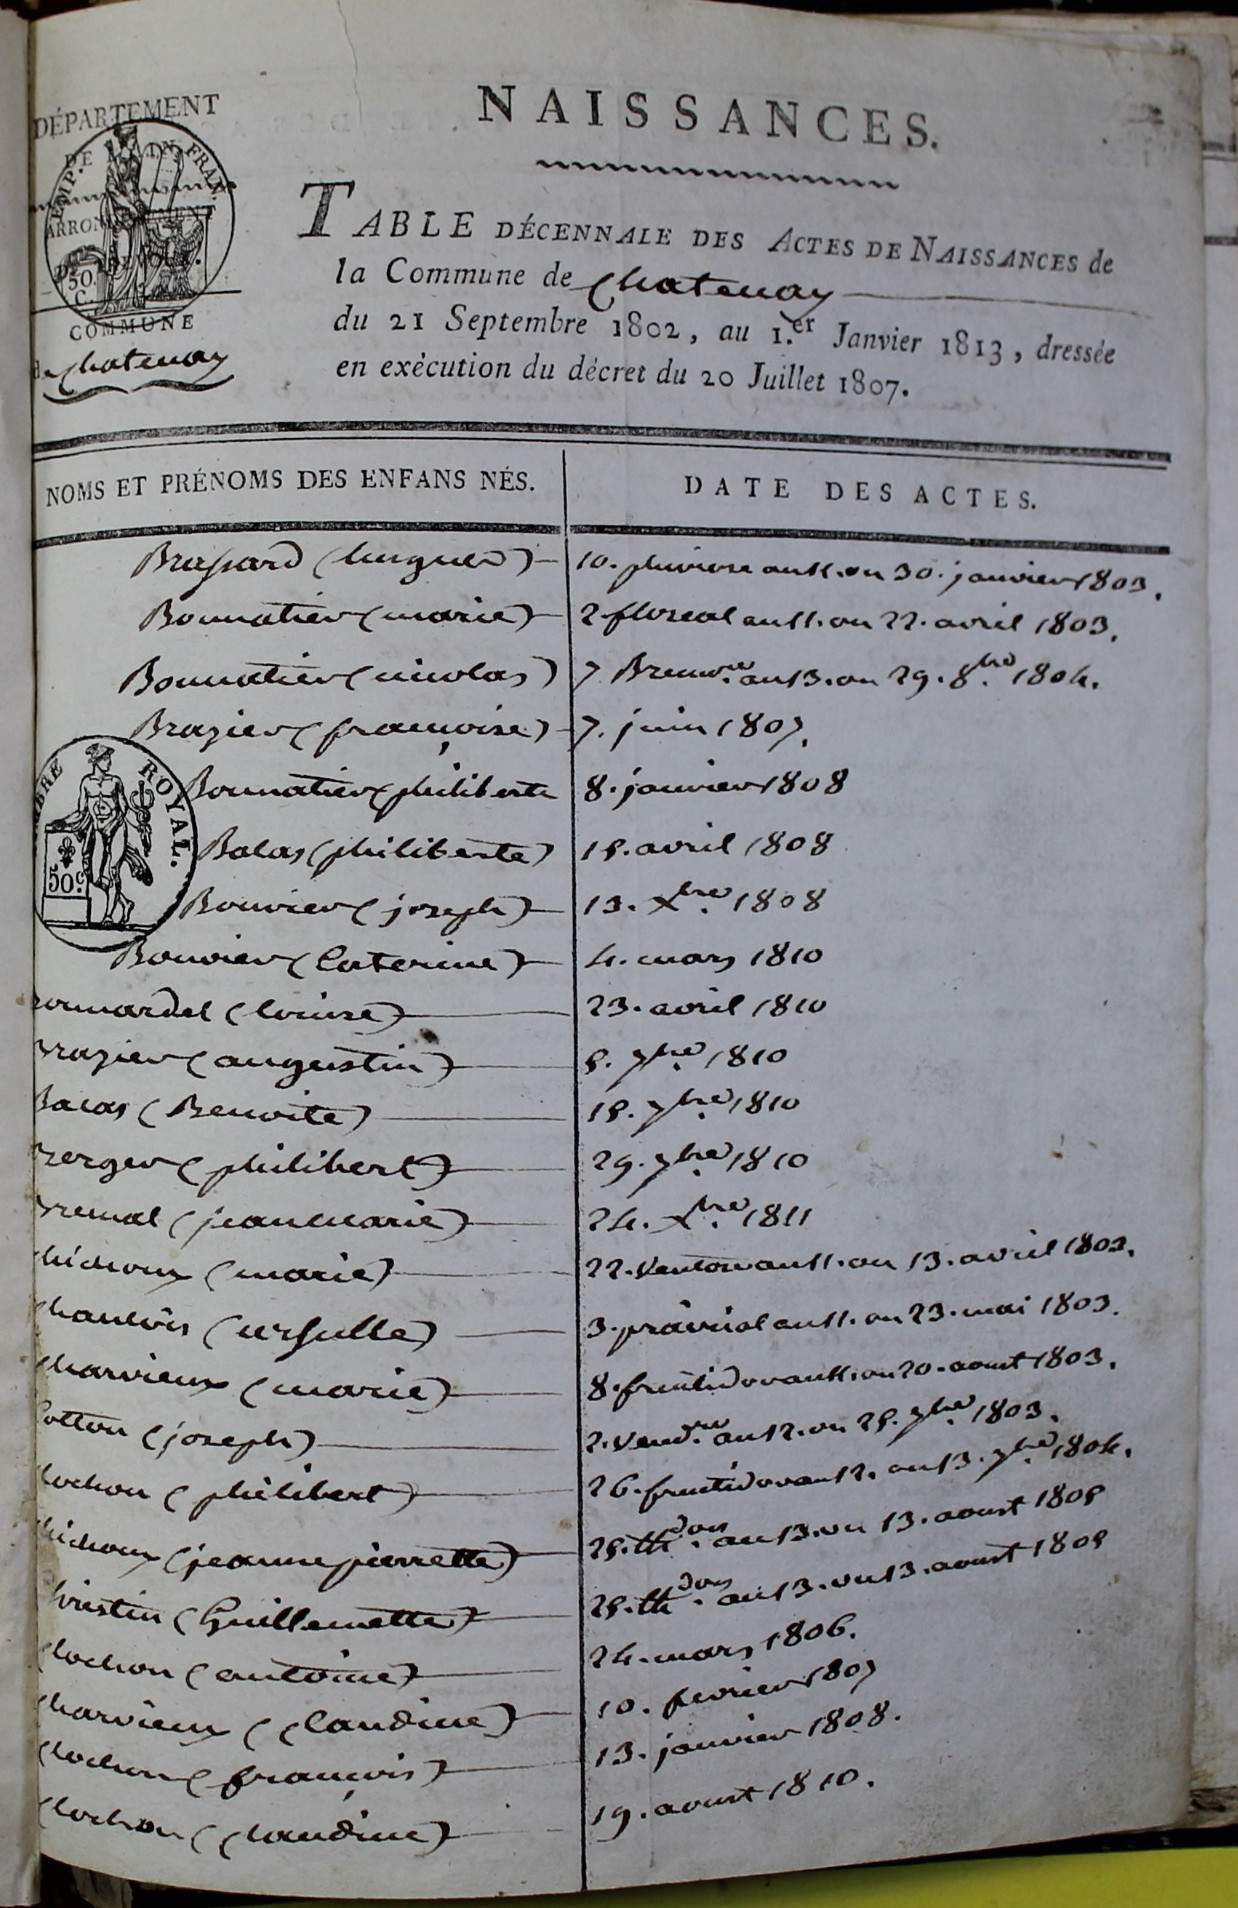 NAISSANCES.
DÉPARTEMENT
DE L'AIN
EMP. FRAN.
ARRONDISSEMENT
50.
C.
COMMUNE
de Chatenay
TABLE DÉCENNALE DES ACTES DE NAISSANCES de
la Commune de Chatenay
du 21 Septembre 1802, au 1.er Janvier 1813, dressée
en exècution du décret du 20 Juillet 1807.
NOMS ET PRÉNOMS DES ENFANS NÉS. DATE DES ACTES.
(hugues) 10. pluviose an 11. ou 30. janvier 1803.
Bonnatier (marie) 2 floreal an 11. ou 22. avril 1803.
Bonnatier (nicolas) 7 Brum.re an 13. ou 29. 8.bre 1804.
Brazier (françoise) 7. juin 1807.
Bonnatier philiberte 8. janvier 1808
TIMBRE ROYAL.
50.c
Balas (philiberte) 15. avril 1808
Bouvier (joseph) 13. X.bre 1808
Bouvier (Caterine) 4. mars 1810
(louise) 23. avril 1810
Brazier (augustin) 5. 7.bre 1810
(Benoite) 15. 7.bre 1810
Berger (philibert) 29. 7.bre 1810
(jean marie) 24. X.bre 1811
(marie) 22. Ventose an 11. ou 13. avril 1803.
(ursulle) 3. prairial an 11. ou 23. mai 1803.
Charvieux (marie) 8. fructidor an 11. ou 20. aoust 1803.
Cotton (joseph) 2. Vend.re an 12. ou 25. 7.bre 1803.
Clochon (philibert) 26. fructidor an 12. ou 13. 7.bre 1804.
(jeanne pierrette) 25. th.dor an 13. ou 13. aoust 1805
Christin (Guillemette) 25. th.dor an 13. ou 13. aoust 1805
Clochon (antoine) 24. mars 1806.
Charvieux (Claudine) 10. fevrier 1807
Clochon (françois) 13. janvier 1808.
Clochon (Claudine) 19. aoust 1810.